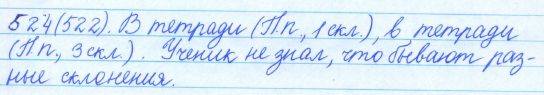 524(522). В тетради (П.п., 1 скл.), в тетради
(П.п., 3 скл.). Ученик не знал, что бывают раз-
ные склонения.